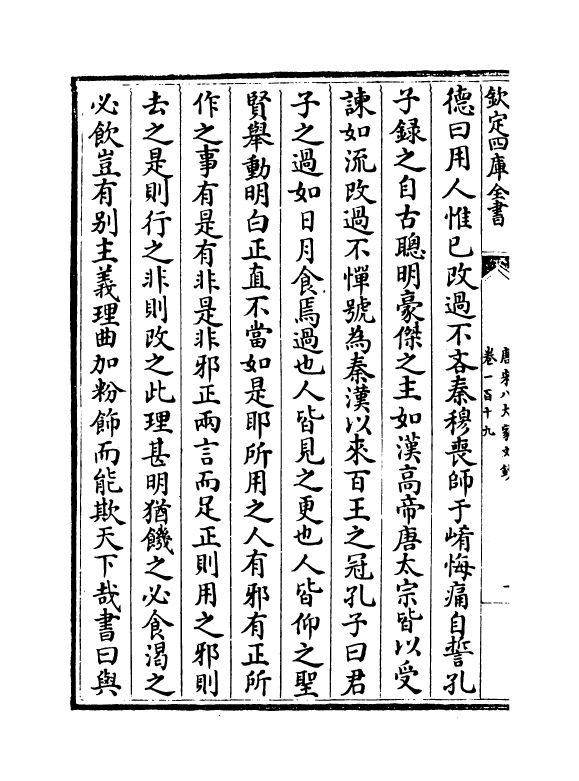 欽定四庫全書
唐宋八大家文鈔
卷一百十九
德曰用人惟已改過不吝秦穆喪師于崤悔痛自誓孔
子録之自古聰明豪傑之主如漢高帝唐太宗皆以受
諫如流改過不憚號為秦漢以來百王之冠孔子曰君
子之過如日月食焉過也人皆見之更也人皆仰之聖
賢舉動明白正直不當如是耶所用之人有邪有正所
作之事有是有非是非邪正兩言而足正則用之邪則
去之是則行之非則改之此理甚明猶饑之必食渴之
必飲豈有别主義理曲加粉飾而能欺天下哉書曰與